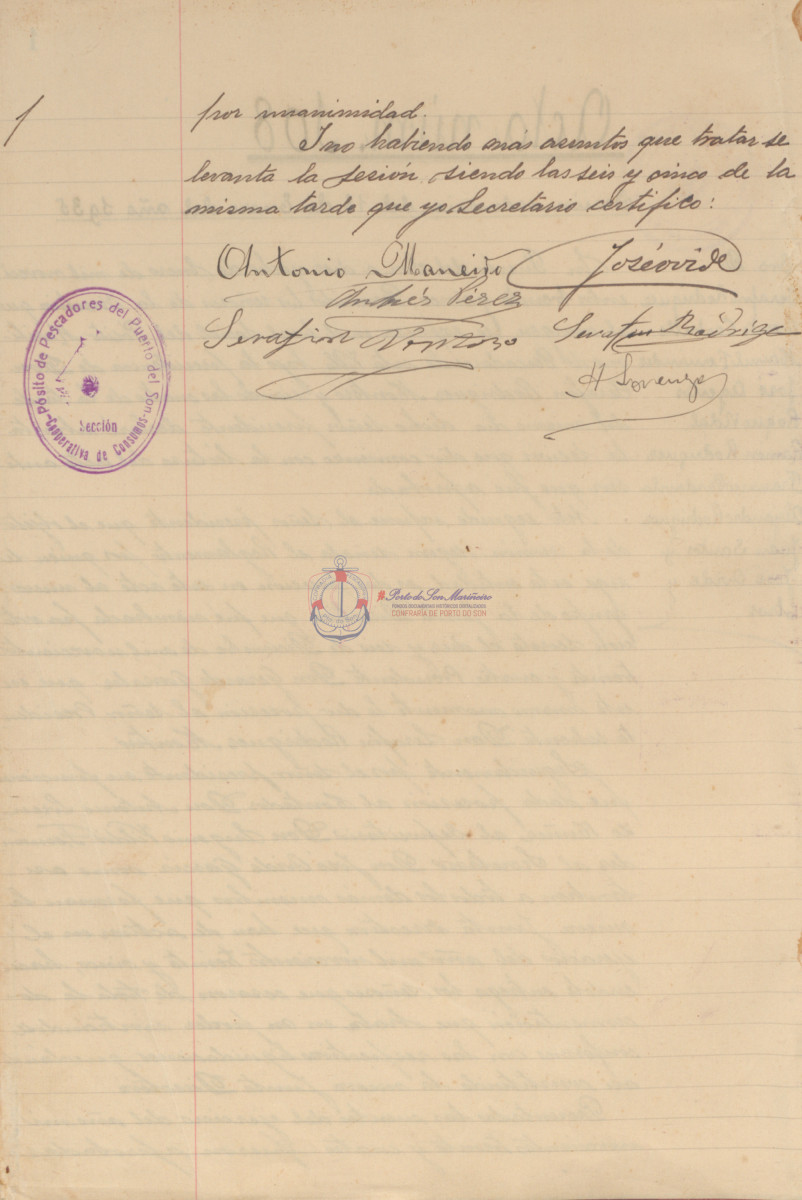 por unanimidad.
I no habiendo más asuntos que tratar se
levanta la sesión siendo las seis y cinco de la
misma tarde que yo Secretario certifico:
Antonio Maneiro
José Ovide
Andrés Pérez
Serafin
Rodríguez
H Lorenzo
Pósito de Pescadores del Puerto del Son
Sección
Cooperativa de Consumos
Porto do Son Mariñeiro
FONDOS DOCUMENTAIS HISTÓRICOS DIXITALIZADOS
CONFRARÍA DE PORTO DO SON